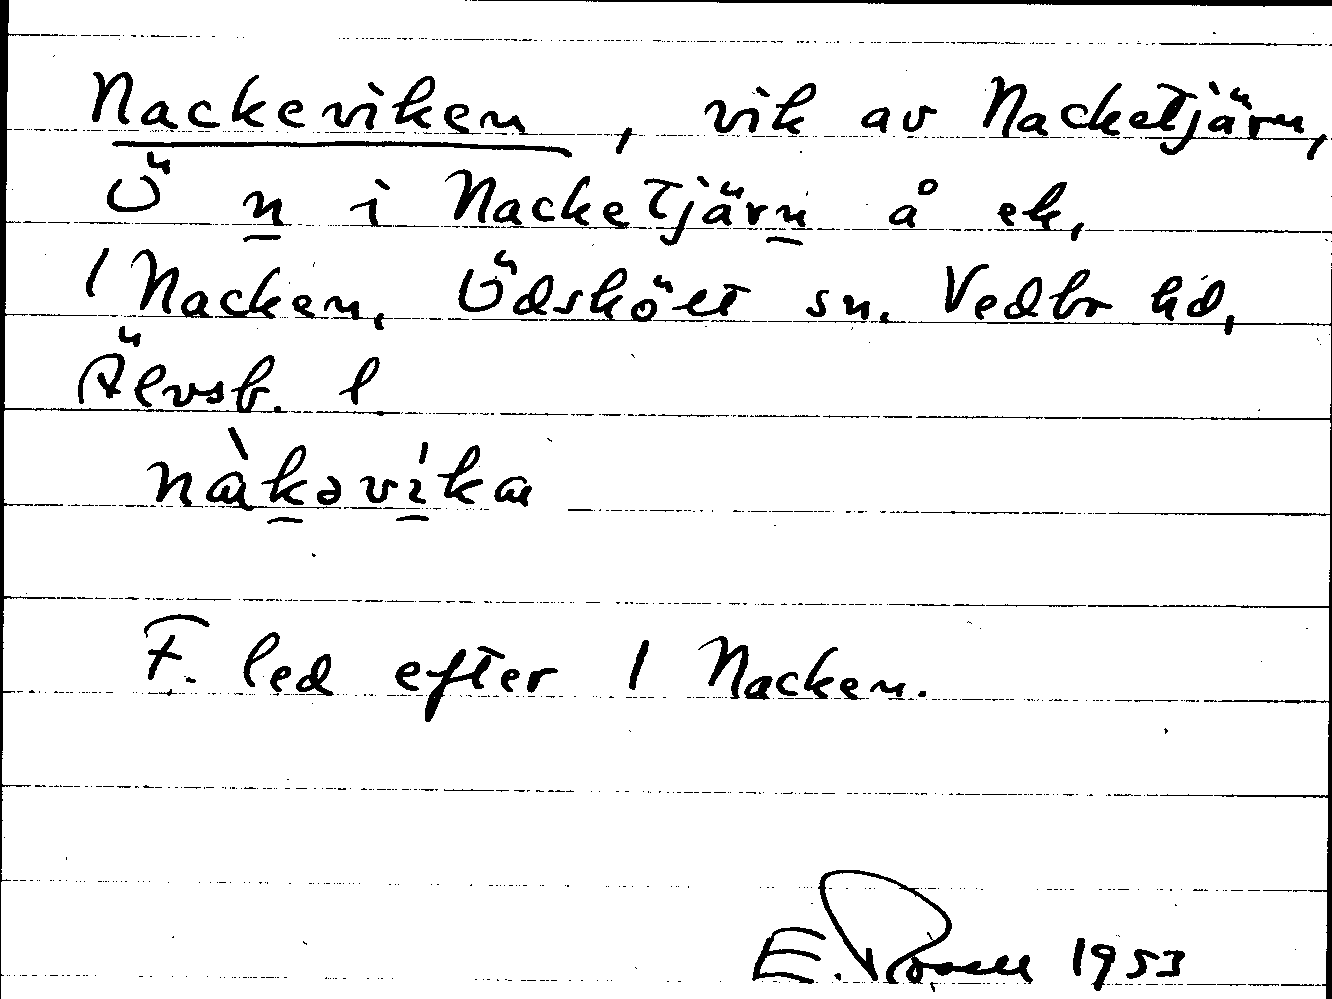 Nackeviken, vik av Nacketjärn,
Ö n i Nacketjärn å ek,
1 Nacken, Ödsköлt sn. Vedbo hd,
Älvsb. l
nàkəvíka
F. led efter 1 Nacken.
E. Rosell 1953